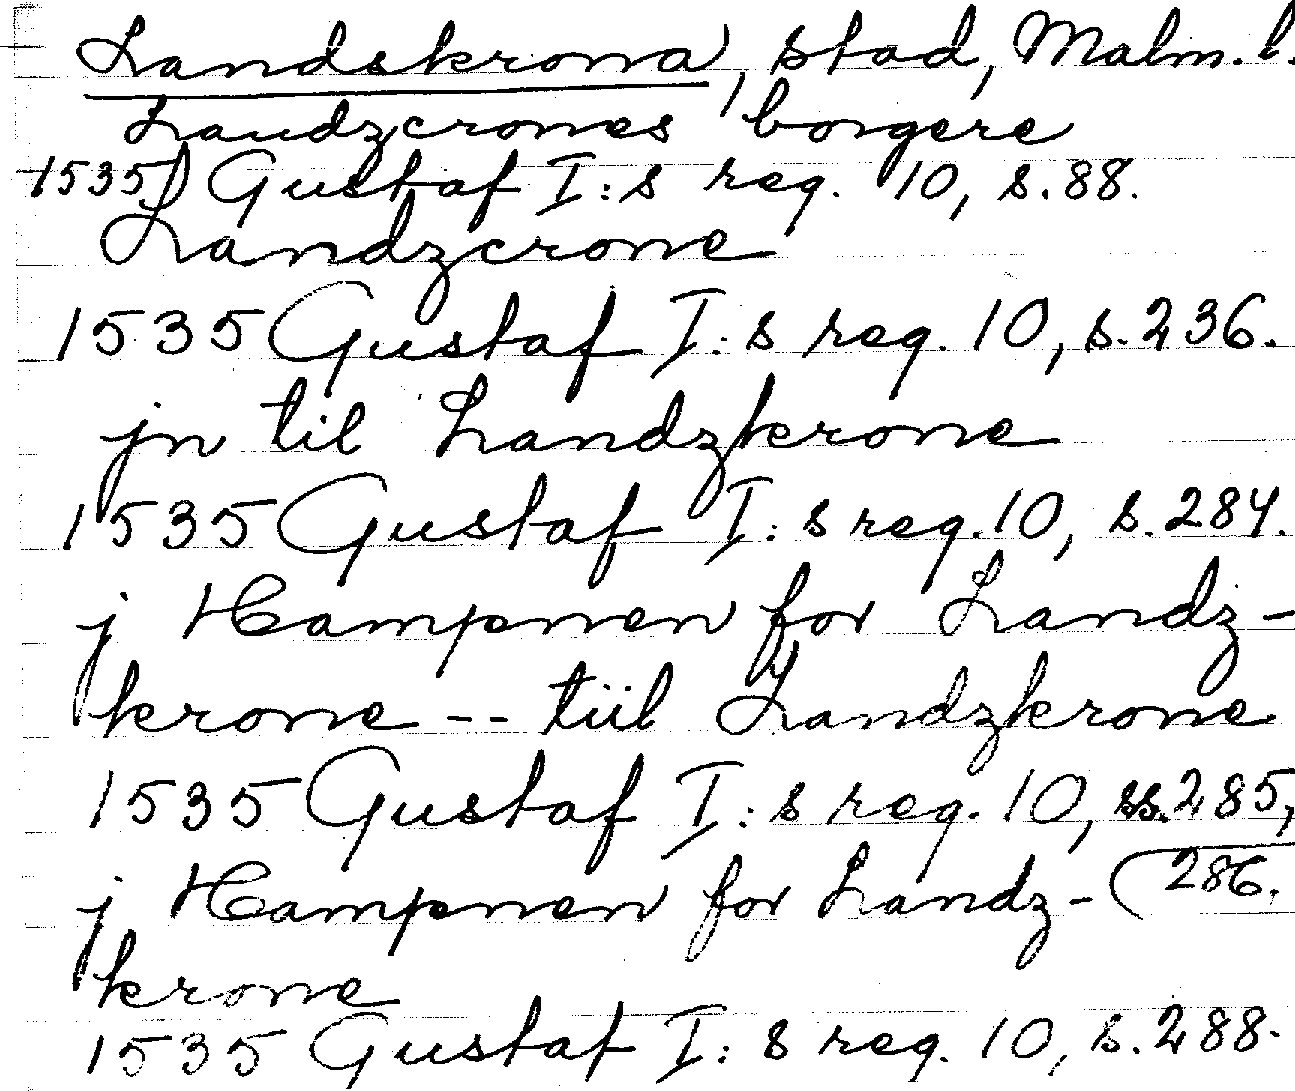 Landskrona, stad, Malm. l.
Landzcrones borgere
1535 Gustaf I:s reg. 10, s. 88.
Landzcrone
1535 Gustaf I:s reg. 10, s. 236.
jn til Landzkrone
1535 Gustaf I:s reg. 10, s. 284.
j Hampnen for Landz-
krone -- tiil Landzkrone
1535 Gustaf I:s reg. 10, ss. 285,
286.
j Hampnen for Landz-
krone
1535 Gustaf I:s reg. 10, s. 288.